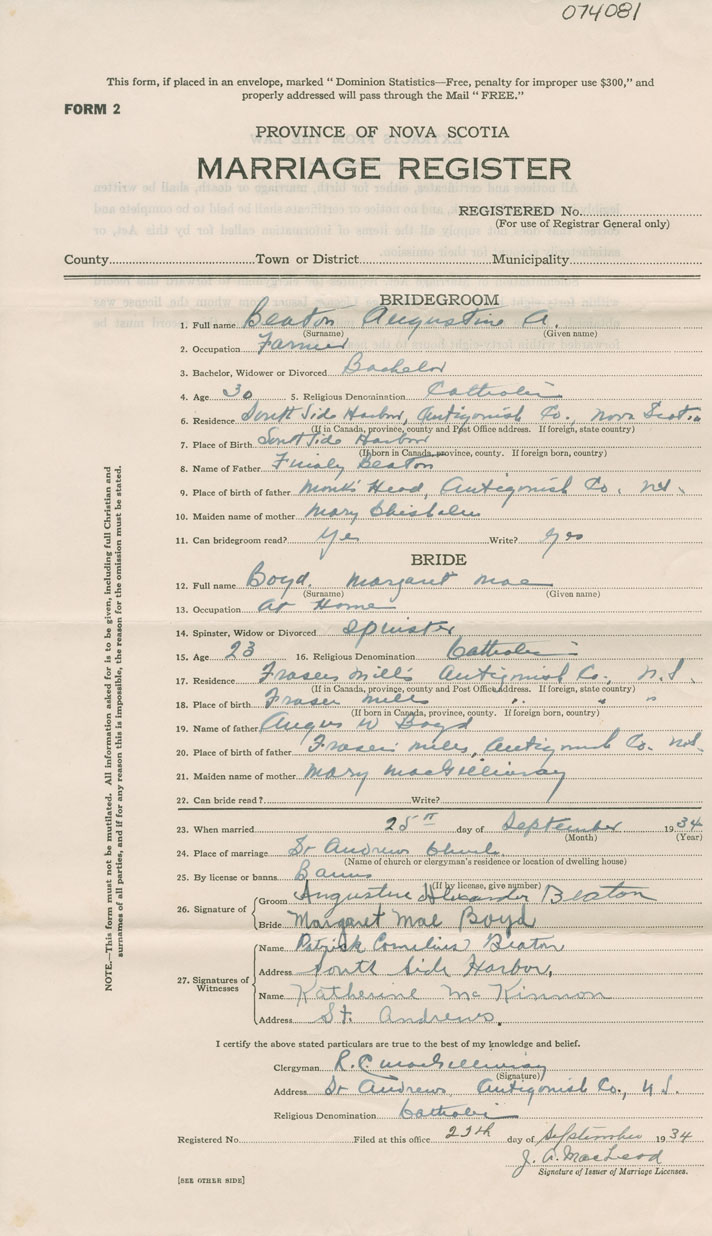 074081
This form, if placed in an envelope, marked " Dominion Statistics—Free, penalty for improper use $300," and
properly addressed will pass through the Mail " FREE."
FORM 2
PROVINCE OF NOVA SCOTIA
MARRIAGE REGISTER
REGISTERED No.
(For use of Registrar General only)
County Town or District Municipality
BRIDEGROOM
1. Full name Beaton Augustine A.
(Surname) (Given name)
2. Occupation Farmer
3. Bachelor, Widower or Divorced Bachelor
4. Age 30 5. Religious Denomination Catholic
6. Residence South Side Harbor, Antigonish Co., Nova Scotia
(If in Canada, province, county and Post Office address. If foreign, state country)
7. Place of Birth South Side Harbor
(If born in Canada, province, county. If foreign born, country)
8. Name of Father Finlay Beaton
9. Place of birth of father Monk's Head, Antigonish Co. N.S.
10. Maiden name of mother Mary Chisholm
11. Can bridegroom read? Yes Write? Yes
BRIDE
12. Full name Boyd. Margaret Mae
(Surname) (Given name)
13. Occupation At Home
14. Spinster, Widow or Divorced Spinster
15. Age 23 16. Religious Denomination Catholic
17. Residence Frasers Mills Antigonish Co., N.S.
(If in Canada, province, county and Post Office address. If foreign, state country)
18. Place of birth Fraser Mills " " "
(If born in Canada, province, county. If foreign born, country)
19. Name of father Angus W Boyd
20. Place of birth of father Frasers Mills, Antigonish Co. N.S.
21. Maiden name of mother Mary MacGillivray
22. Can bride read? Write?
23. When married 25th day of September 1934
(Month) (Year)
24. Place of marriage St Andrews Church
(Name of church or clergyman's residence or location of dwelling house)
25. By license or banns Banns
(If by license, give number)
26. Signature of Groom Augustine Alexander Beaton
Bride Margaret Mae Boyd
27. Signatures of Witnesses
Name Patrick Cornelius Beaton
Address South Side Harbor,
Name Katherine McKinnon
Address St. Andrews.
I certify the above stated particulars are true to the best of my knowledge and belief.
Clergyman R.C. MacGillivray
(Signature)
Address St Andrews Antigonish Co., N.S.
Religious Denomination Catholic
Registered No. Filed at this office day of September 1934
J. A. MacLeod
Signature of Issuer of Marriage Licenses.
[SEE OTHER SIDE]
NOTE.—This form must not be mutilated. All information asked for is to be given, including full Christian and
surnames of all parties, and if for any reason this is impossible, the reason for the omission must be stated.